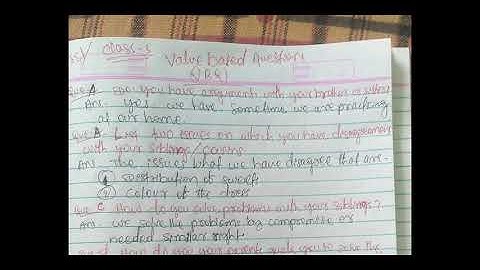 Class-5 Value based Question
Que A Do you have arguments with your brother or sister
Ans. Yes we have Sometime we are practicing
at our home.
Que A List two issues on which you have disagreement
with your siblings/cousins.
Ans The issues what we have disagree that are-
① Distribution of sweets
② colour of the dress
Que C How do you solve problems with your siblings?
Ans. we solve the problems by compromise or
needed similar right.
How do your parents guide you to solve the